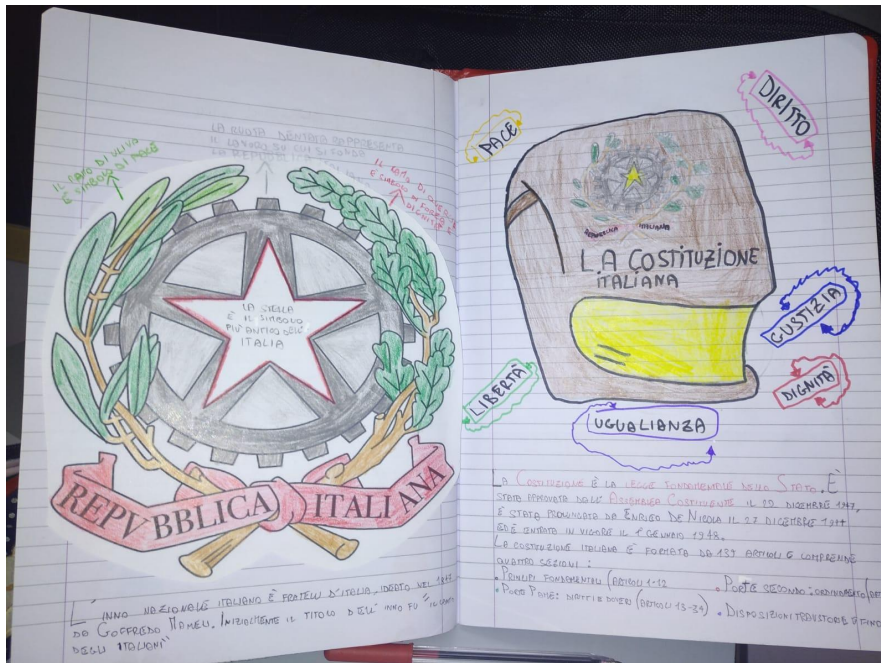 IL RAMO DI ULIVO
È SIMBOLO DI PACE
LA RUOTA DENTATA RAPPRESENTA
IL LAVORO SU CUI SI FONDA
LA REPUBBLICA
IL RAMO DI QUERCIA
È SIMBOLO
DI FORZA E
DIGNITÀ
LA STELLA
È IL SIMBOLO
PIÙ ANTICO DELL'
ITALIA
REPVBBLICA ITALIANA
L'INNO NAZIONALE ITALIANO È FRATELLI D'ITALIA, IDEATO NEL
DA GOFFREDO MAMELI. INIZIALMENTE IL TITOLO DELL'INNO FU "IL CANTO
DEGLI ITALIANI"
PACE
DIRITTO
REPUBBLICA ITALIANA
LA COSTITUZIONE
ITALIANA
GUSTIZIA
LIBERTÀ
DIGNITÀ
UGUALIANZA
LA COSTITUZIONE È LA LEGGE FONDAMENTALE DELLO STATO. È
STATA APPROVATA DALL'ASSEMBLEA COSTITUENTE IL 22 DICEMBRE 1947,
È STATA PROMULGATA DA ENRICO DE NICOLA IL 27 DICEMBRE 1947
ED È ENTRATA IN VIGORE IL 1° GENNAIO 1948.
LA COSTITUZIONE ITALIANA È FORMATA DA 139 ARTICOLI E COMPRENDE
QUATTRO SEZIONI:
• PRINCIPI FONDAMENTALI (ARTICOLI 1-12
• PARTE PRIMA: DIRITTI E DOVERI (ARTICOLI 13-54)
• PARTE SECONDA: ORDINAMENTO
• DISPOSIZIONI TRANSITORIE E FINA